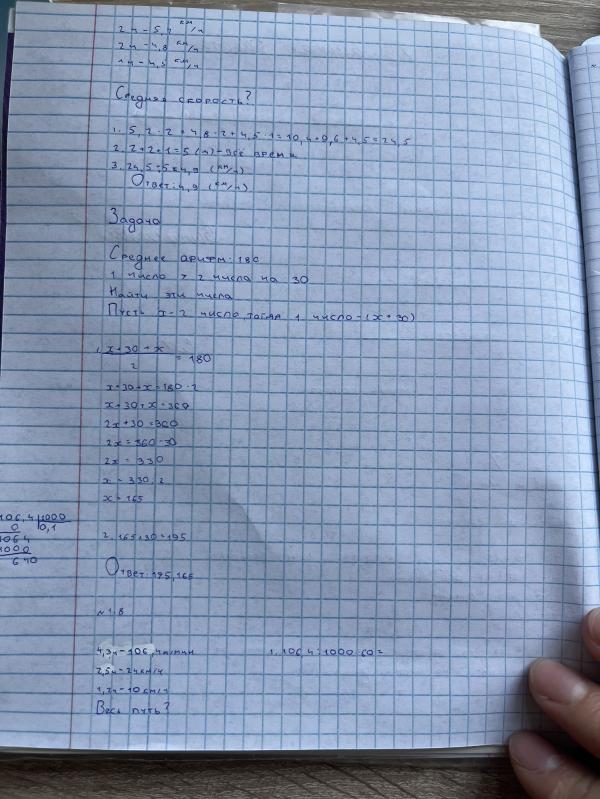 2ч - 5,2 км/ч
2ч - 4,8 км/ч
1ч - 4,5 км/ч
Средняя скорость?
1. 5,2·2+4,8·2+4,5·1=10,4+9,6+4,5=24,5
2. 2+2+1=5(ч)-все время
3. 24,5:5=4,9 (км/ч)
Ответ: 4,9 (км/ч)
Задача
Среднее арифм. 180
1 число > 2 числа на 30
Найти эти числа
Пусть x - 2 число, тогда 1 число - (x+30)
1. x+30+x
2
= 180
x+30+x=180·2
x+30+x=360
2x+30=360
2x=360-30
2x=330
x=330:2
x=165
106,4 1000
0 0,1
1064
1000
640
2. 165+30=195
Ответ: 195, 165
№1.8
4,3ч-106,4м/мин 1. 106,4:1000·60=
2,5ч-24км/ч
1,2ч-10км/ч
Весь путь?